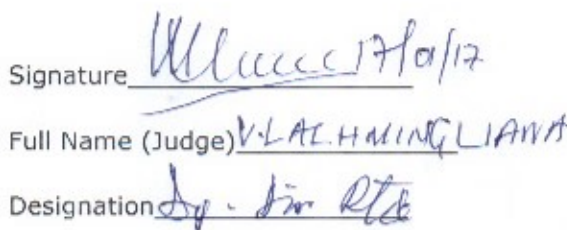 Signature 17/01/17
Full Name (Judge) V.LALHMINGLIANA
Designation Dy. Dir